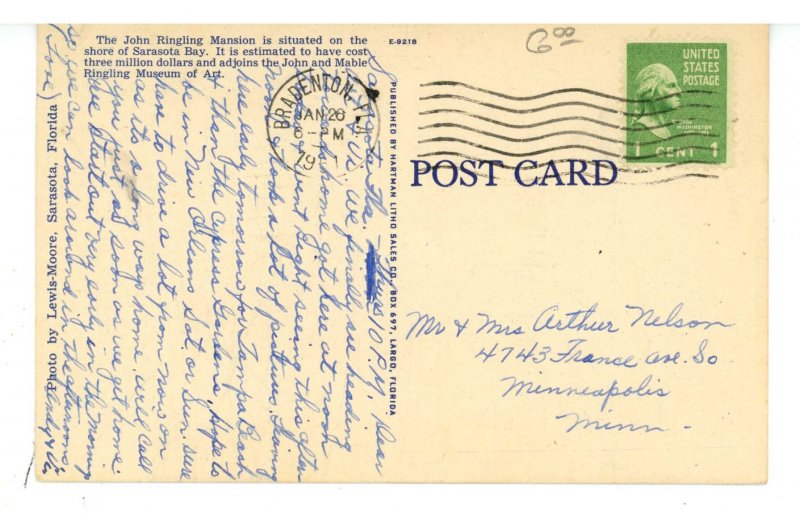 The John Ringling Mansion is situated on the
shore of Sarasota Bay. It is estimated to have cost
three million dollars and adjoins the John and Mable
Ringling Museum of Art.
E-9218
6 00
UNITED
STATES
POSTAGE
GEORGE
WASHINGTON
1 CENT 1
BRADENTON
JAN 26
6 PM
19
POST CARD
PUBLISHED BY HARTMAN LITHO SALES CO., BOX 697, LARGO, FLORIDA
Photo by Lewis-Moore, Sarasota, Florida
Mr & Mrs Arthur Nelson
4743 France Ave. So
Minneapolis
Minn.
10 P.M. Dear
We finally are heading
home got here at noon
went sight seeing this after
noon, took a lot of pictures. Leaving
here early tomorrow for Tampa Beach
& then the Cypress Gardens. Hope to
be in New Orleans Sat. or Sun. sure
have to drive a lot from now on
as its a long ways home. will call
you just as soon as we get home.
We start out very early in the morning
so we can look around in the afternoons.
Love,